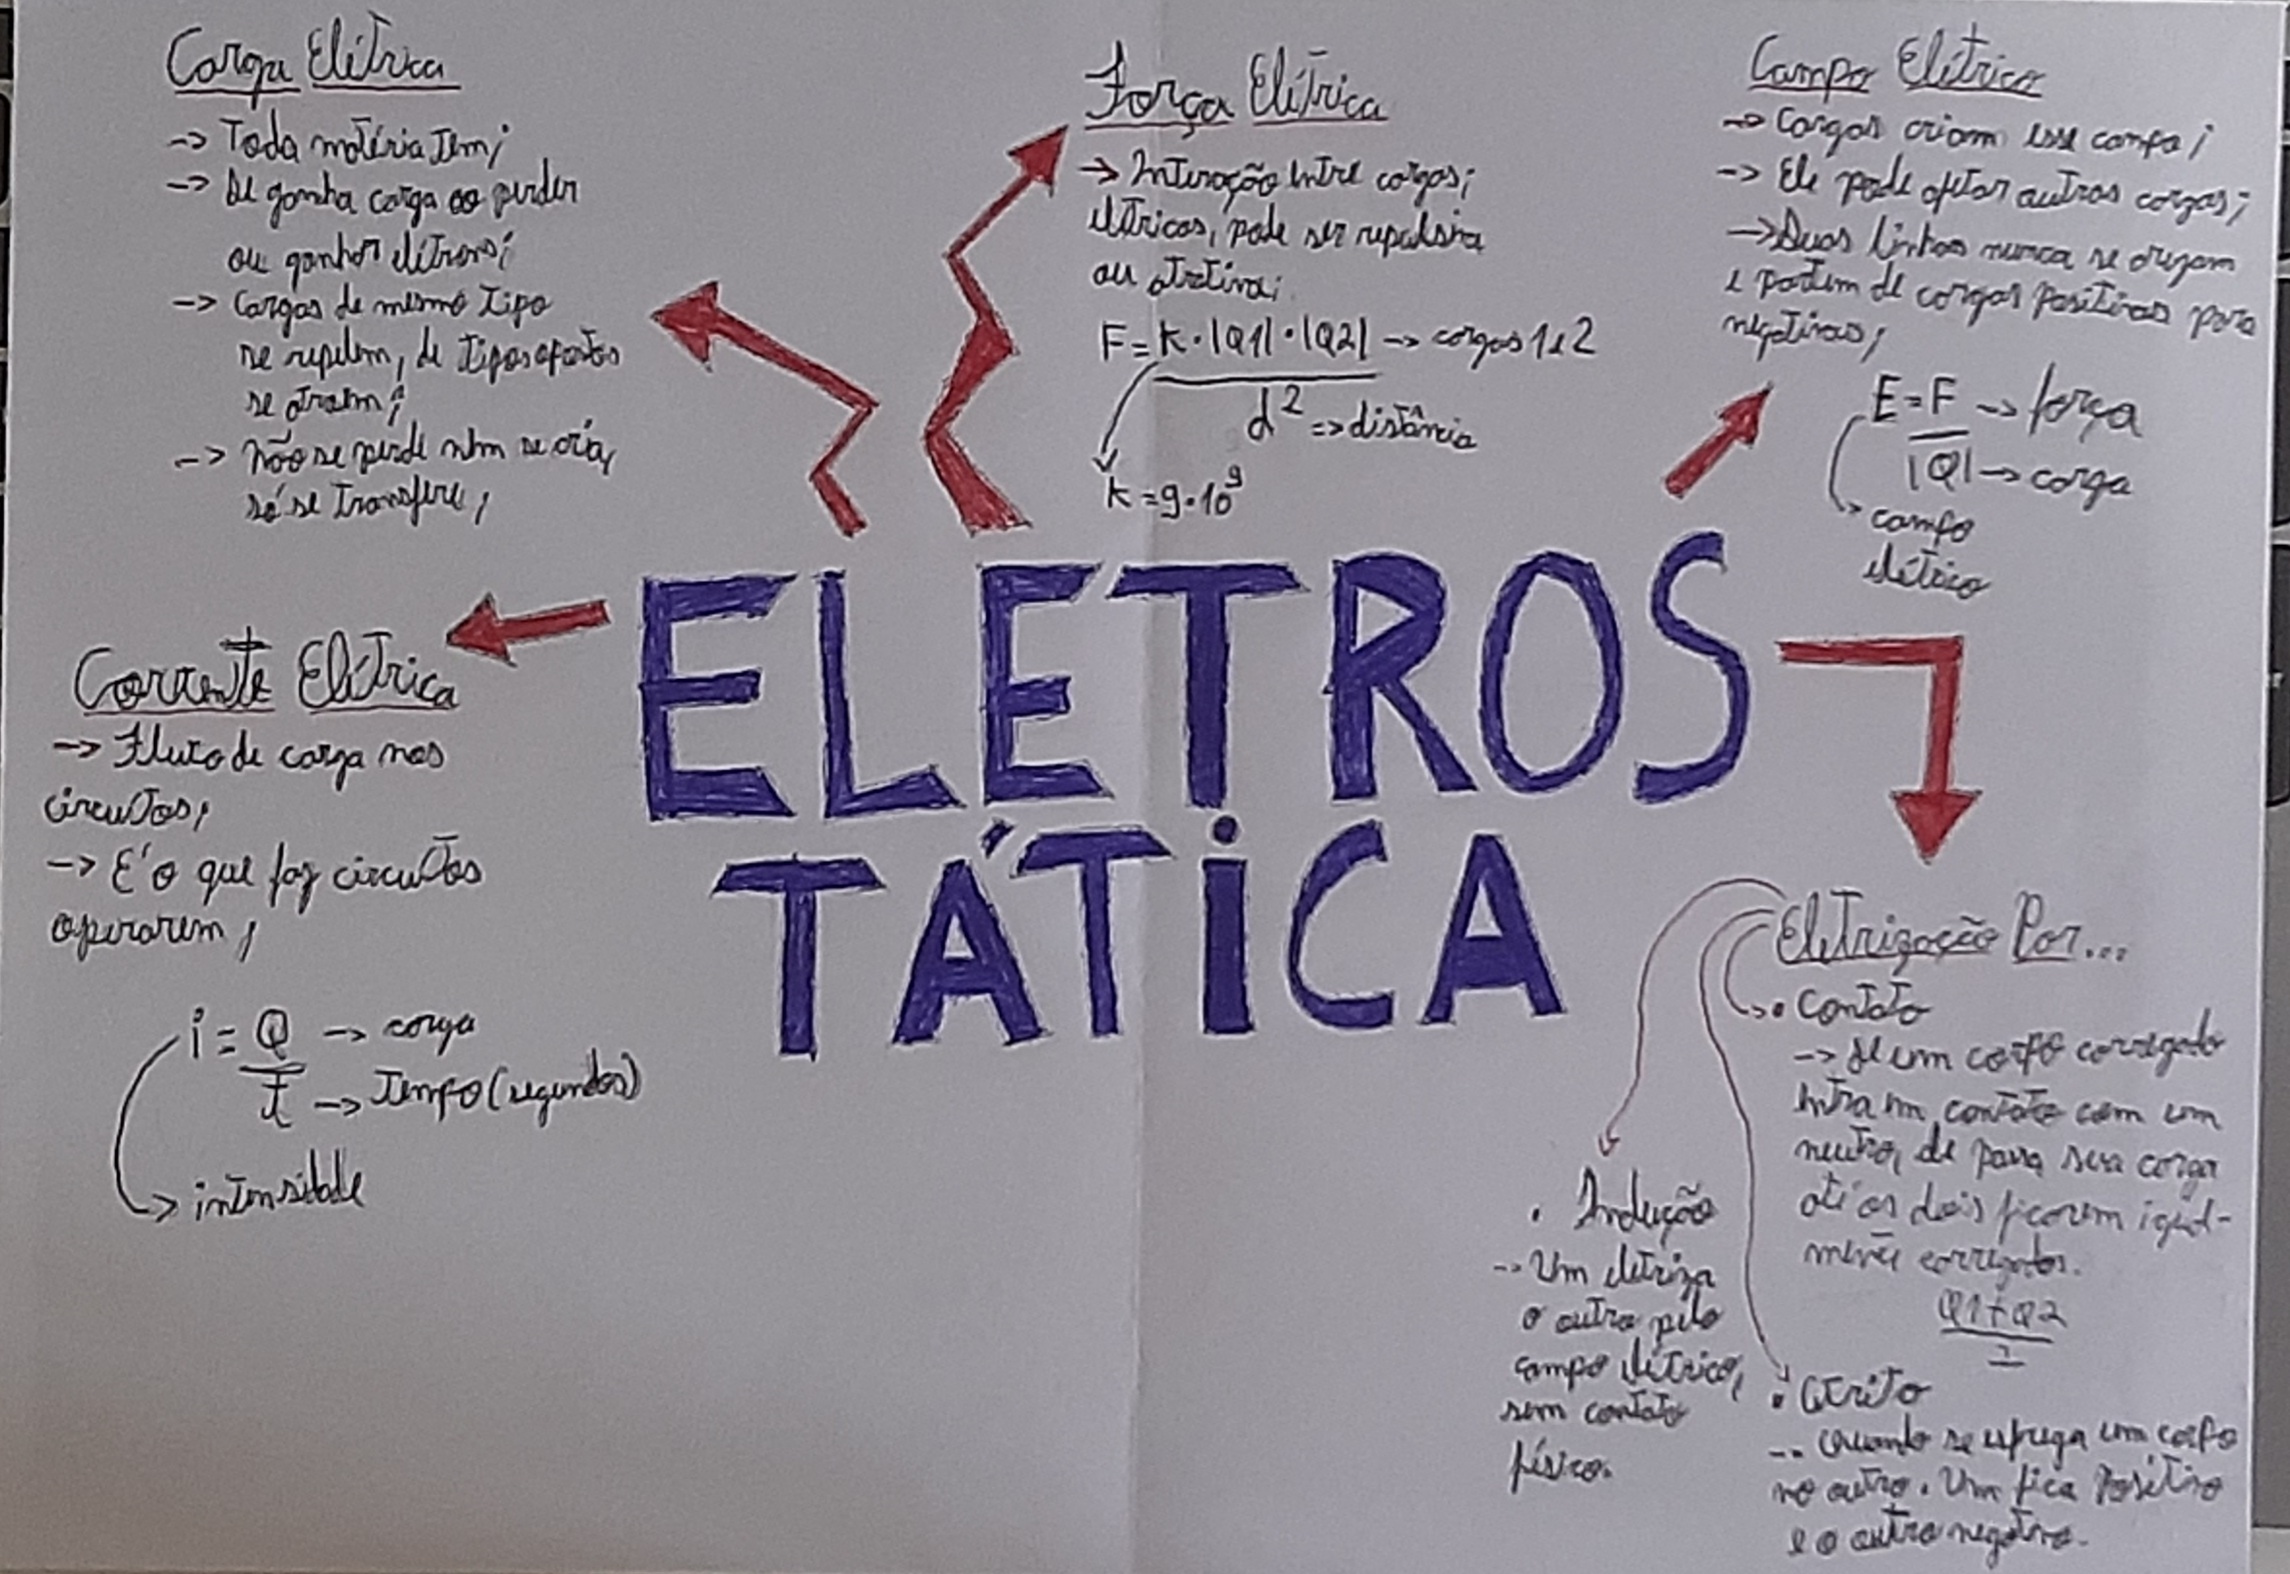 Carga Elétrica
-> Toda matéria tem;
-> Se ganha carga ao perder
ou ganhar elétrons;
-> Cargas de mesmo tipo
se repelem, de tipos opostos
se atraem;
-> Não se perde nem se cria,
só se transfere;
Força Elétrica
-> Interação entre cargas;
elétricas, pode ser repulsiva
ou atrativa;
F = K · |Q1| · |Q2| -> cargas 1 e 2
d² => distância
K = 9 · 10⁹
Campo Elétrico
-> Cargas criam esse campo;
-> Ele pode afetar outras cargas;
-> Duas linhas nunca se cruzam
e partem de cargas positivas para
negativas;
E = F -> força
|Q| -> carga
campo
elétrico
ELETROS
TÁTICA
Corrente Elétrica
-> Fluxo de carga nos
circuitos;
-> É o que faz circuitos
operarem;
i = Q -> carga
t -> Tempo (segundos)
-> intensidade
Eletrização Por...
• Contato
-> Se um corpo carregado
entra em contato com um
neutro, ele passa sua carga
até os dois ficarem igual-
mente carregados.
Q1+Q2
2
• Indução
-> Um eletriza
o outro pelo
campo elétrico,
sem contato
físico.
• Atrito
-- Quando se esfrega um corpo
no outro. Um fica positivo
e o outro negativo.